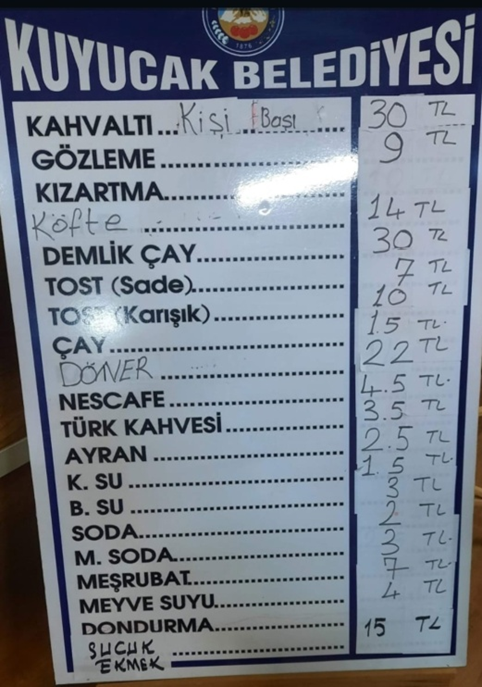 1876
KUYUCAK BELEDİYESİ
KAHVALTI...Kişi Başı 30 TL
GÖZLEME 9 TL
KIZARTMA 14 TL
Köfte 30 TL
DEMLİK ÇAY 7 TL
TOST (Sade) 10 TL
TOST (Karışık) 15 TL.
ÇAY 22 TL
DÖNER 4.5 TL.
NESCAFE 3.5 TL
TÜRK KAHVESİ 2.5 TL
AYRAN 1.5 TL.
K. SU 3 TL
B. SU 2 TL
SODA 3 TL.
M. SODA 7 TL.
MEŞRUBAT 4 TL
MEYVE SUYU
DONDURMA 15 TL
SUCUK
EKMEK